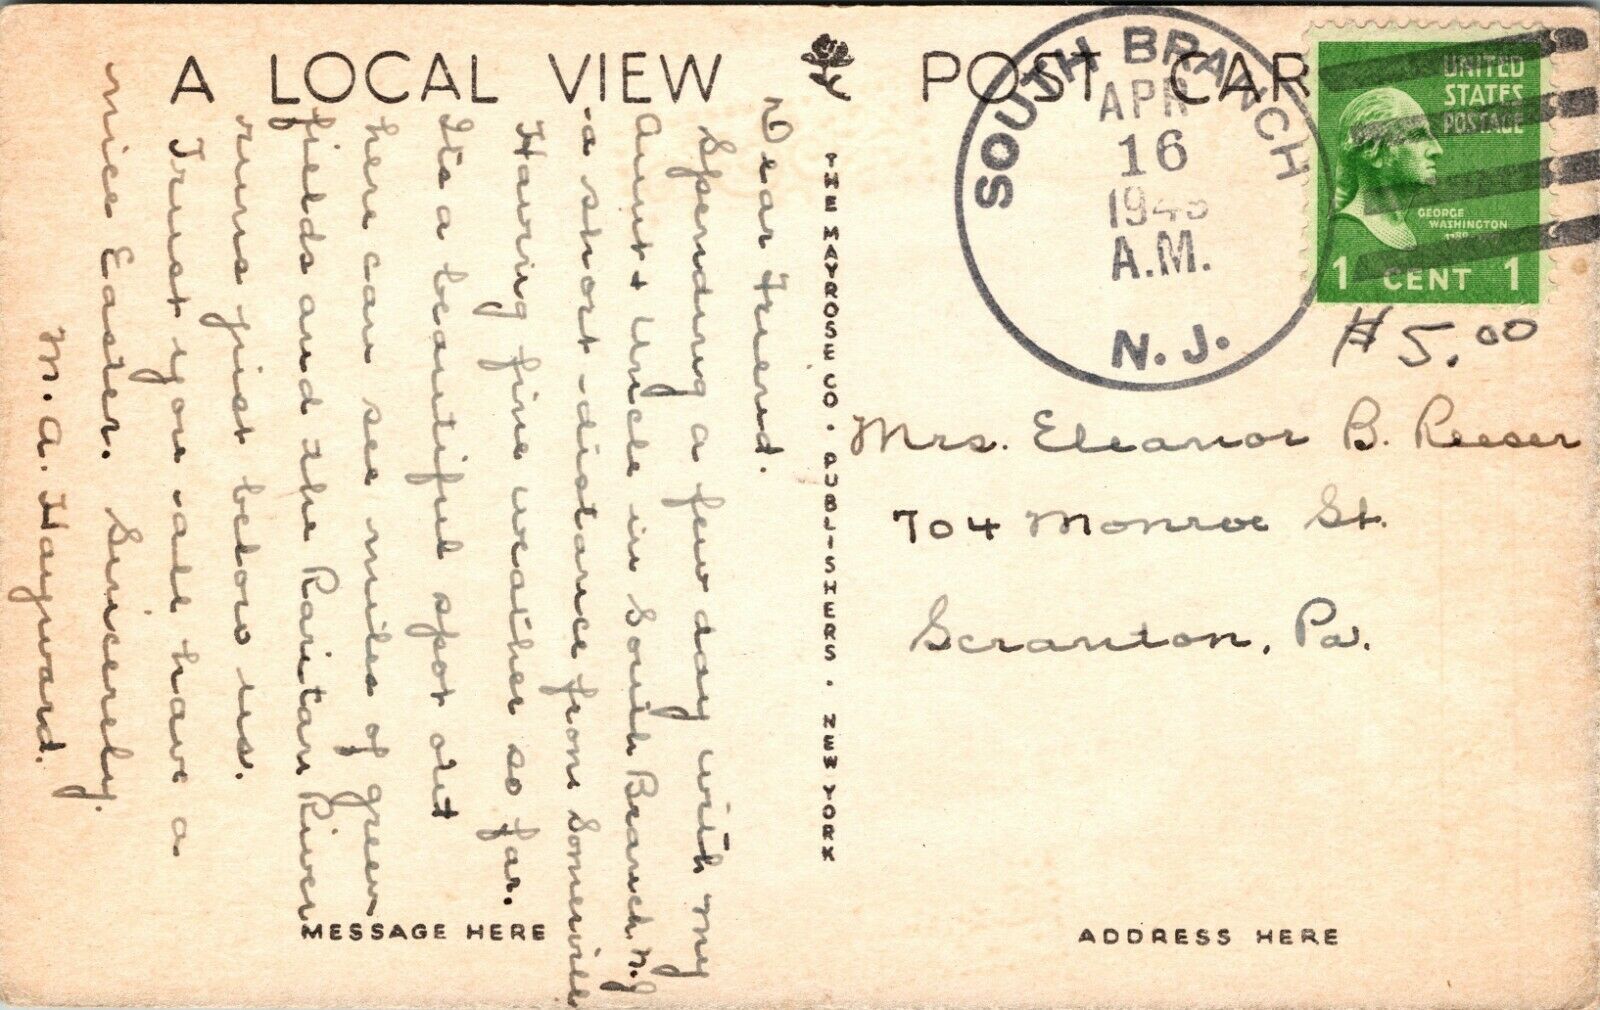 A LOCAL VIEW POST CAR
SOUTH BRANCH
APR
16
A.M.
N. J.
UNITED
STATES
POSTAGE
GEORGE
WASHINGTON
1 CENT 1
#5.00
Mrs. Eleanor B. Reeser
704 Monroe St.
Scranton, Pa.
ADDRESS HERE
THE MAYROSE CO. PUBLISHERS. NEW YORK
Dear Friend.
Spending a few day with my
Aunt & Uncle in South Branch N.J
a short distance from Somerville
Having fine weather so far.
Its a beautiful spot out
here can see miles of green
fields and the Raritan River
runs just below us.
Trust you all have a
nice Easter. Sincerely.
M. A. Hayward.
MESSAGE HERE